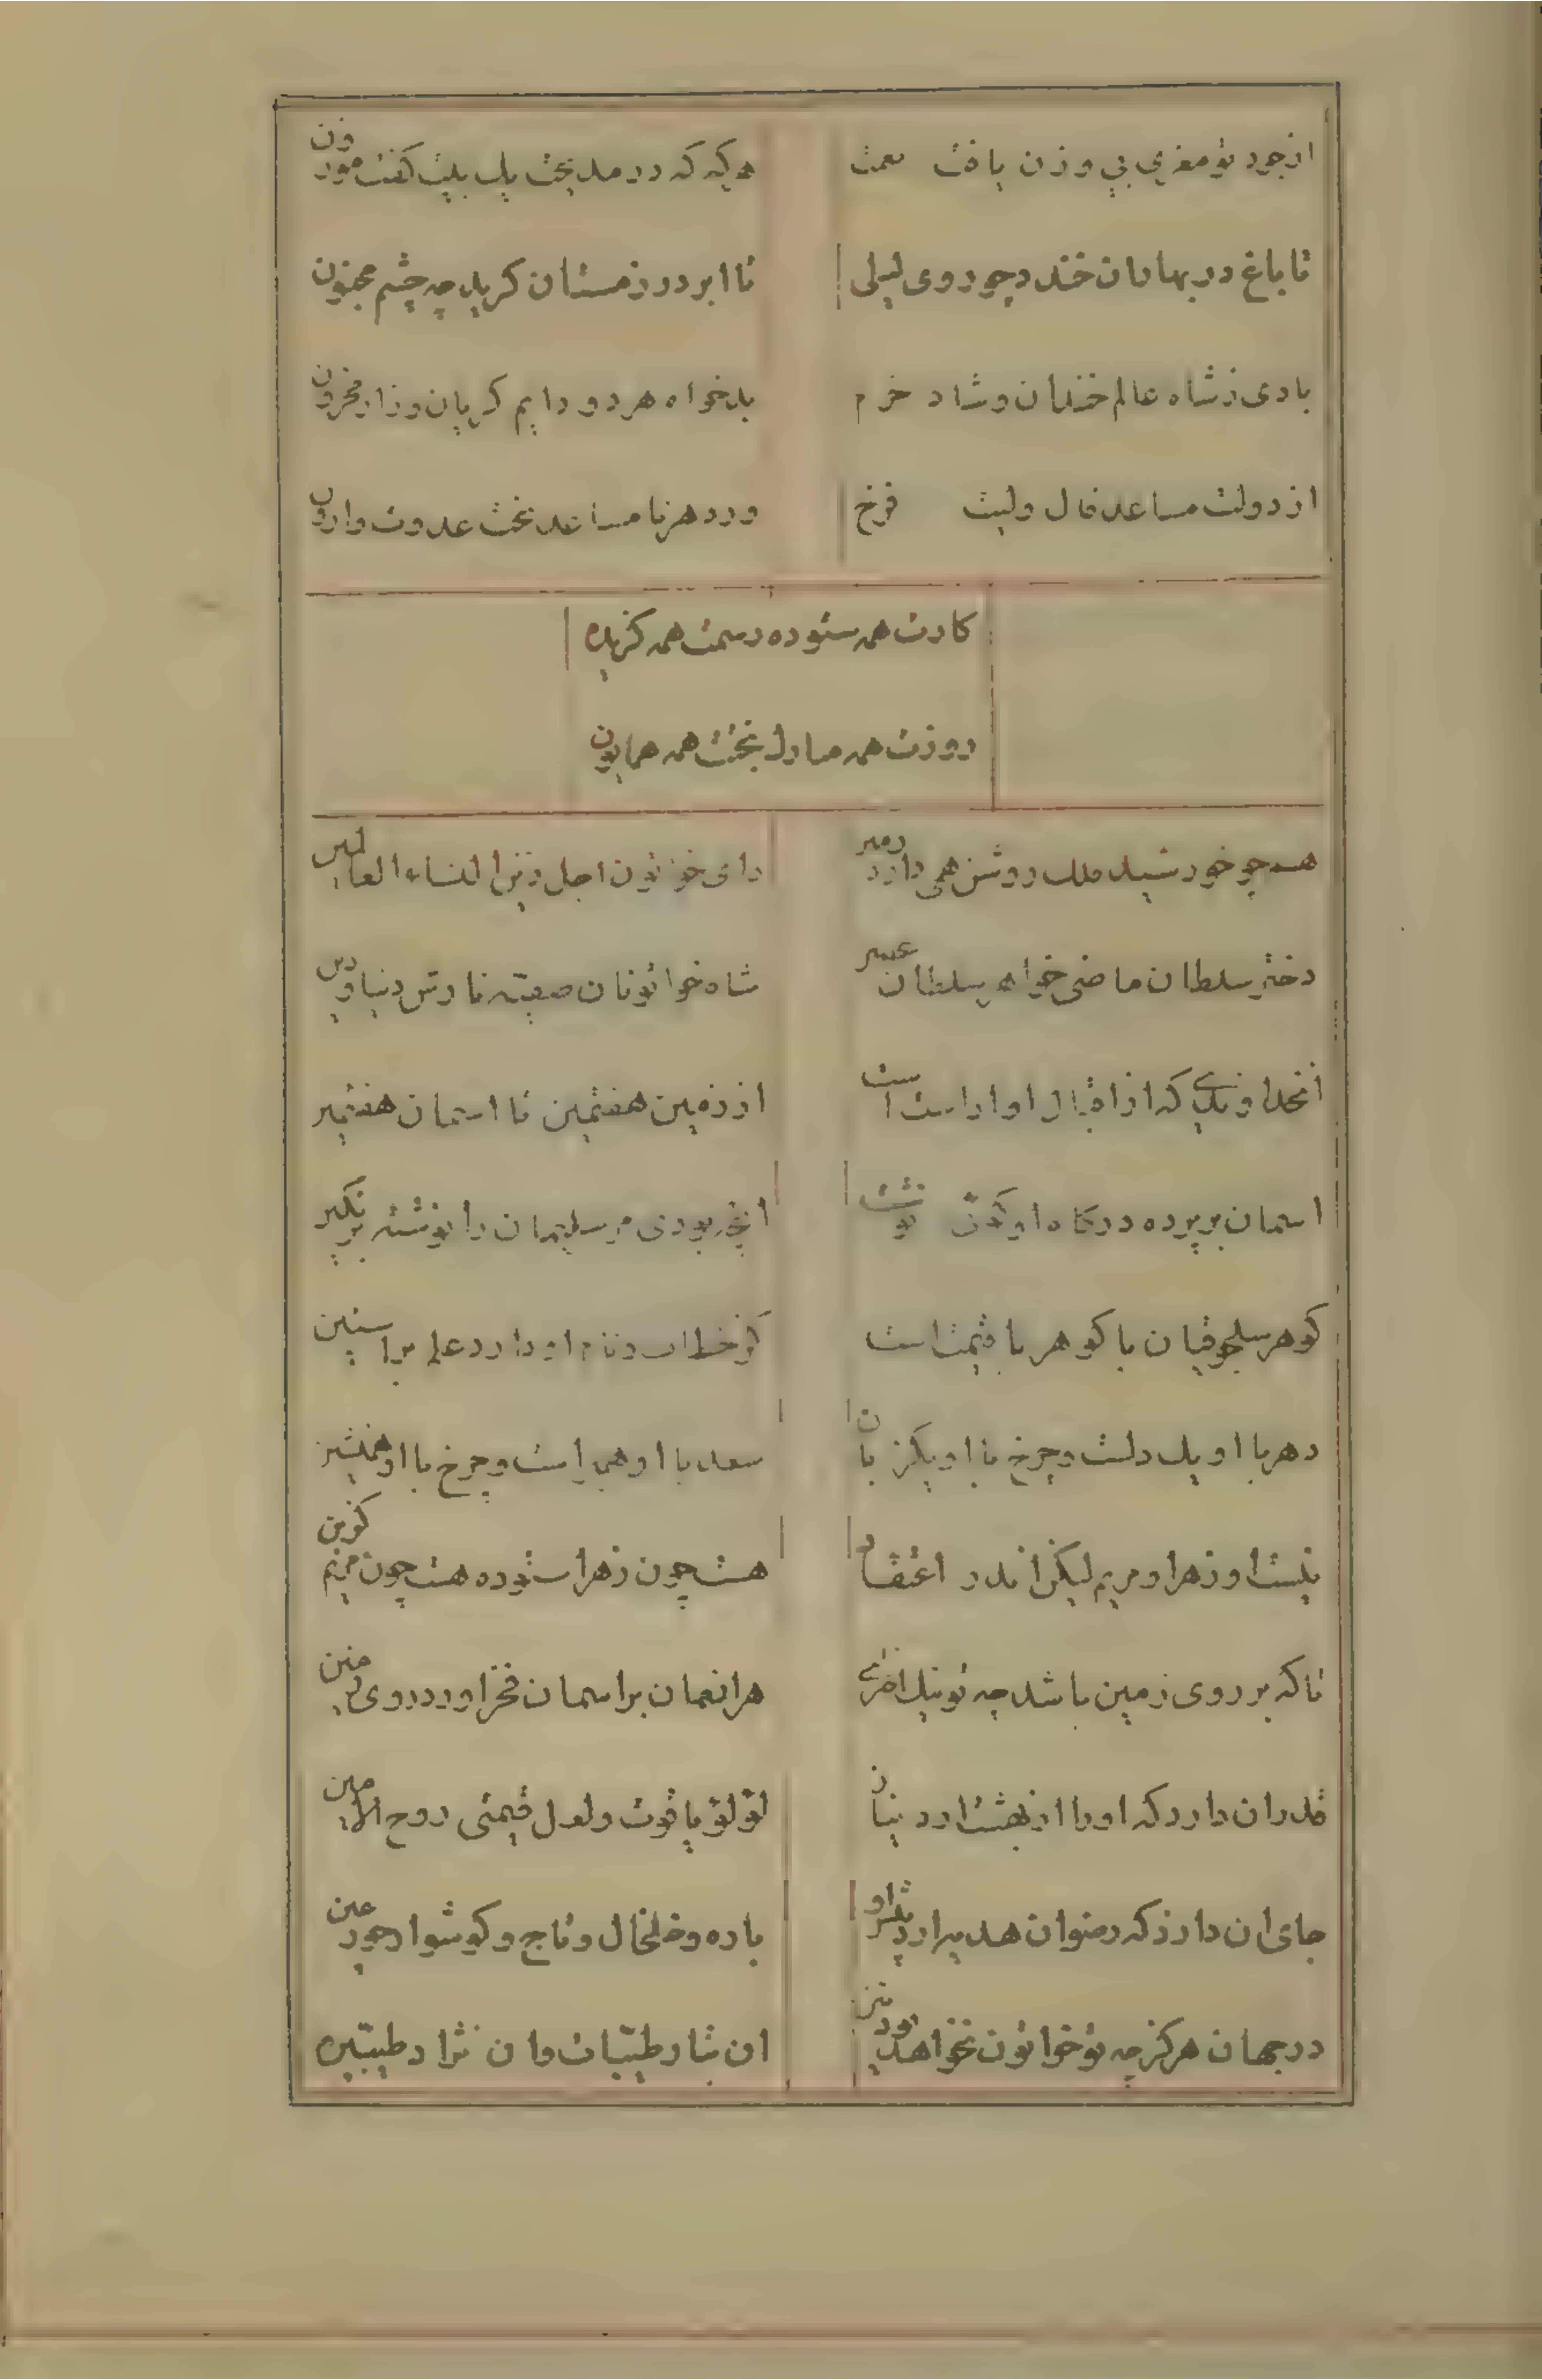 از جود تو معزی بی وزن یافت نعمت
هر که که در مدیحت یک بیت گفت موزون
تا باغ در بهاران خندد چو روی لیلی
تا ابر در زمستان گرید چه چشم مجنون
بادی ز شاه عالم خندان و شاد خرم
بدخواه هر دو دایم گریان و زار محزون
از دولت مساعد فال ولیت فرخ
ور دهر نامساعد بخت عدوت وارون
کارت همه ستوده رسمت همه گزیده
روزت همه مبارک بختت همه همایون
همچو خورشید فلک روشن همی دارد زمین
رای خواتون اجل زین النساء العالمین
دختر سلطان ماضی خواهر سلطان عصر
شاه خواتونان صفیه نازش دنیا و دین
آنخداوندی که از اقبال او اراسته است
از زمین هفتمین تا اسمان هفتمین
اسمان بر پرده درگاه او گوئی نوشت
آنچه بودی مر سلیمان را نوشته بر نگین
گوهر سلجوقیان با گوهر با قیمت است
کز خطاب و نام او دارد علم بر استین
دهر با او یک دلست و چرخ با او یکزبان
سعد با او همبر است و چرخ با او همنشین
نیست او زهرا و مریم لیکن اندر اعتقاد
هست چون زهرا ستوده هست چون مریم گزین
تا که بر روی زمین باشد چه تو نیک اختری
هر زمان بر اسمان فخر اورد روی زمین
قدر ان دارد که او را از بهشت ارد نیان
لؤلؤ یاقوت و لعل قیمتی روح الامین
جای ان دارد که رضوان هدیه ارد نزد او
یاره و خلخال و تاج و گوشوار حور عین
در جهان هرگز چه تو خواتون نخواهد بود نیز
ان تبار طیبات وان نژاد طیبین